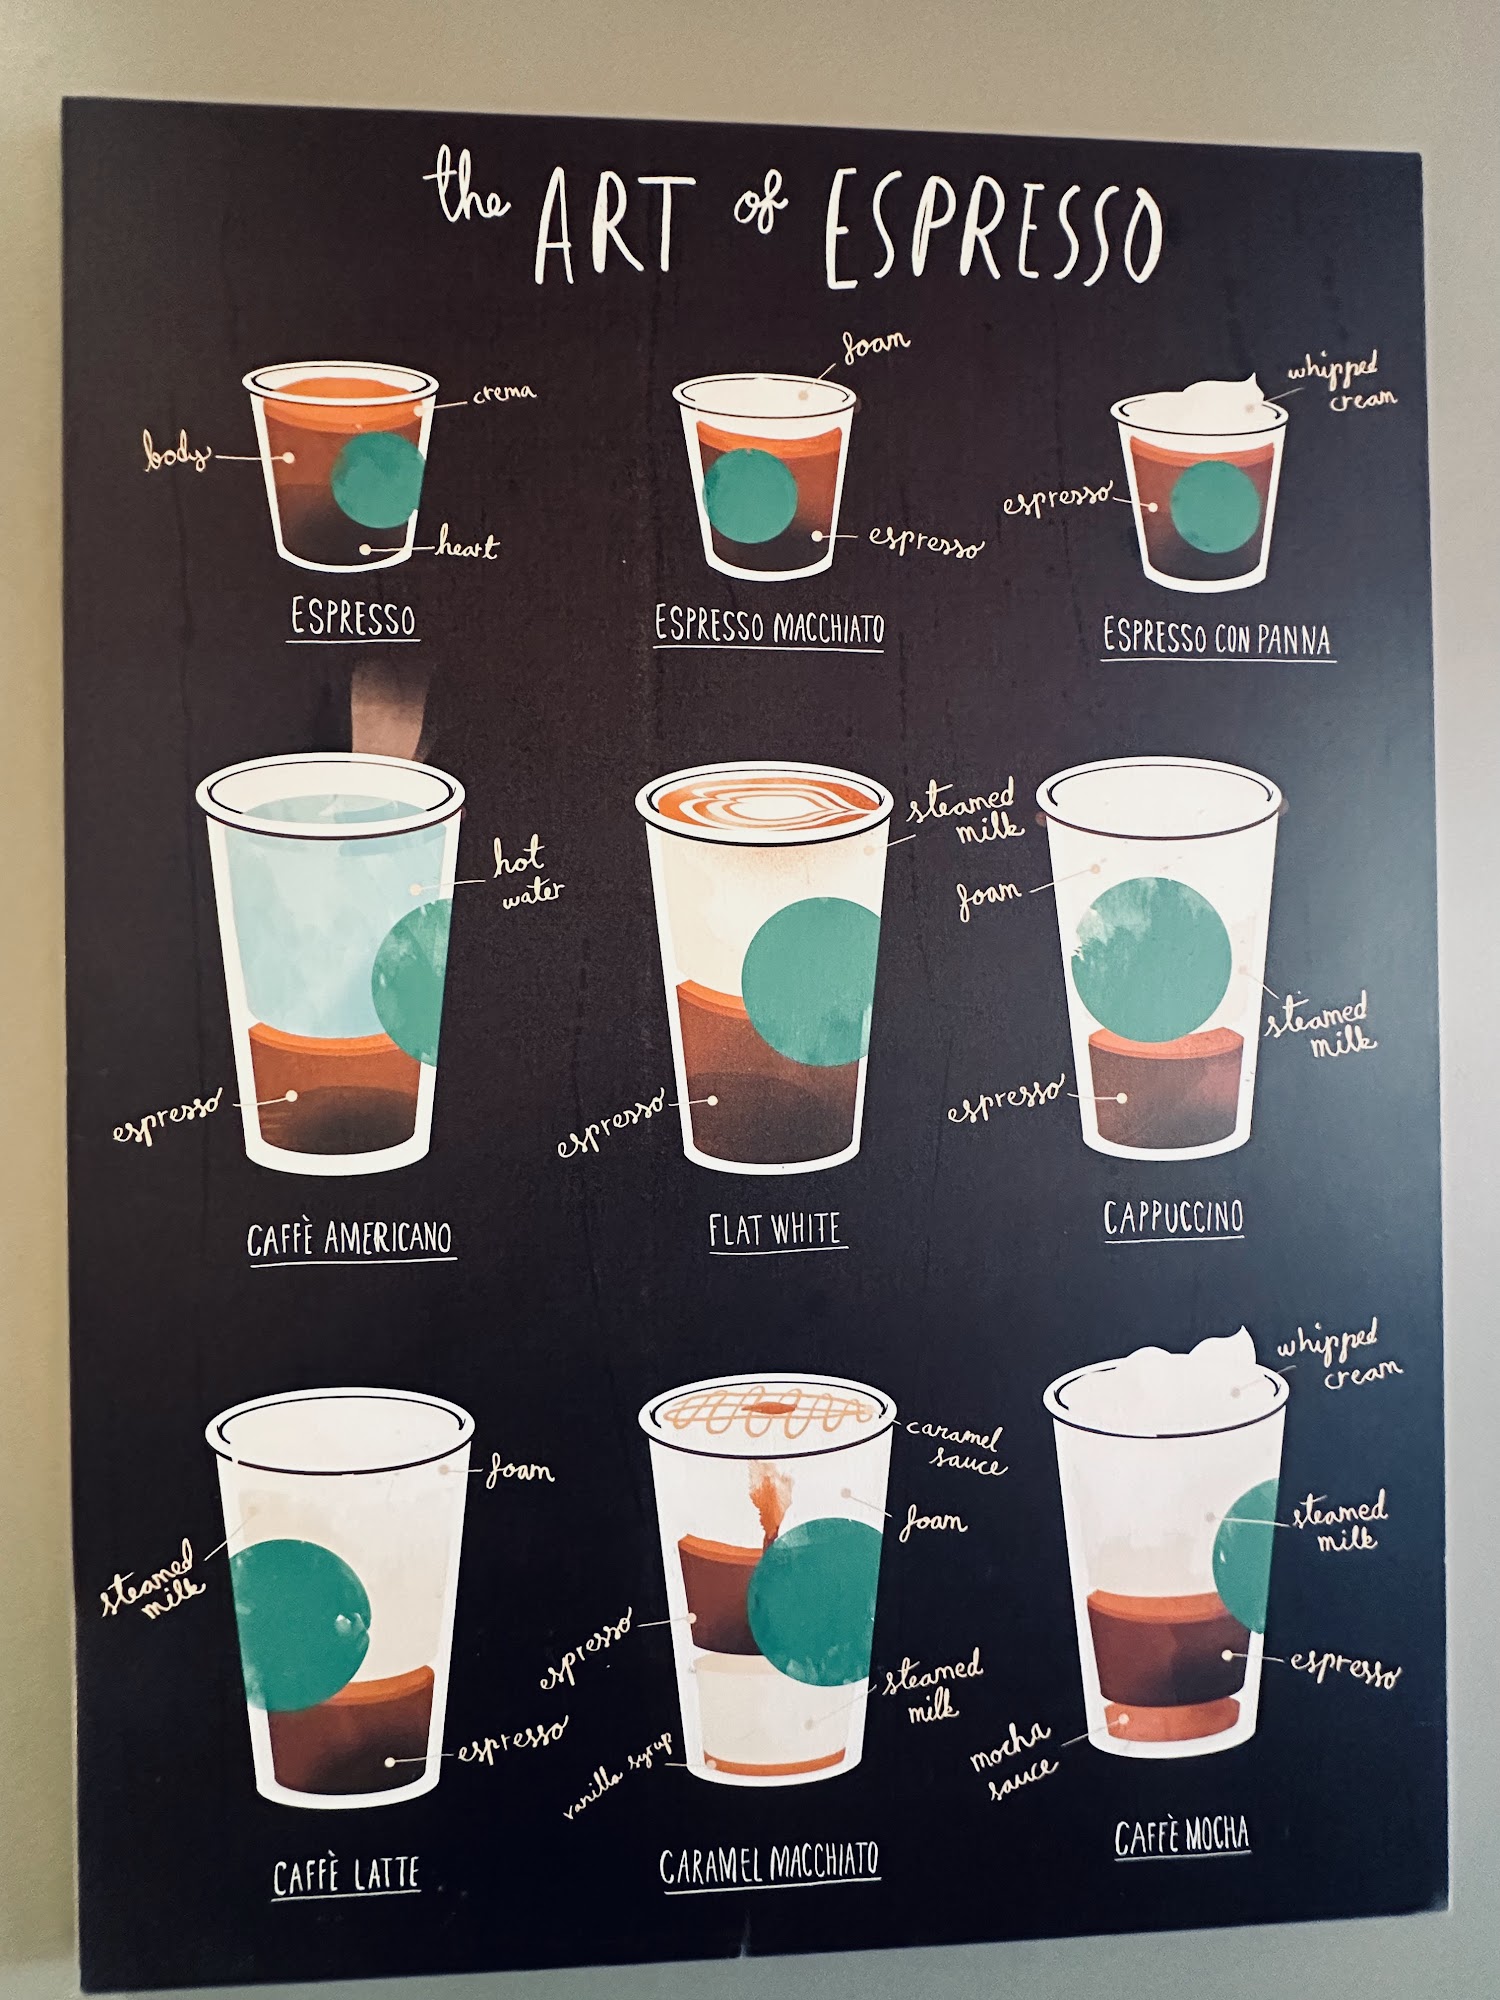 the ART of ESPRESSO
crema
body
heart
ESPRESSO
foam
espresso
ESPRESSO MACCHIATO
whipped
cream
espresso
ESPRESSO CON PANNA
hot
water
espresso
CAFFÈ AMERICANO
steamed
milk
espresso
FLAT WHITE
foam
steamed
milk
espresso
CAPPUCCINO
foam
steamed
milk
espresso
CAFFÈ LATTE
caramel
sauce
foam
espresso
steamed
milk
vanilla syrup
CARAMEL MACCHIATO
whipped
cream
steamed
milk
espresso
mocha
sauce
CAFFÈ MOCHA